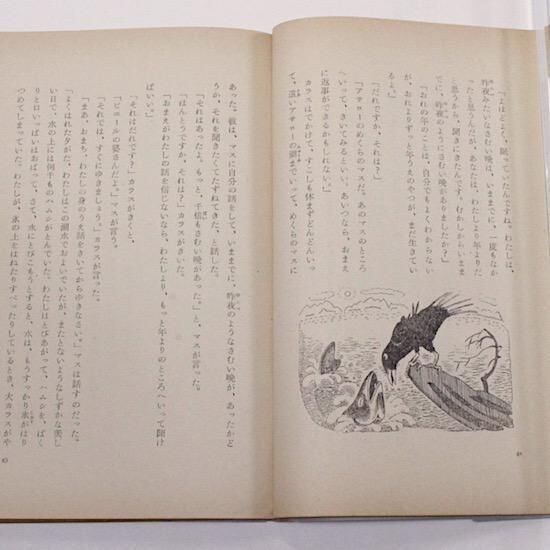 「よほどよく、眠っていたんですね。わたしは、
昨夜みたいなさむい晩は、いままでに、一度もなか
ったと思うんだが、あなたは、わたしより年よりだ
と思うから、聞きにきたんです。むかしからいまま
で、昨夜のようにさむい晩がありましたか？」
「おれの年のことは、自分でもよくわからない
が、おれよりずっと年うえのやつが、まだ生きてい
るよ。」
「だれですか、それは？」
「アサローのめくらのマスだ。あのマスのところ
へいって、きいてみるといい。あいつなら、おまえ
に返事ができるかもしれない。」
カラスはでかけて、すこしも休まずどんどんいっ
て、遠いアサローの湖までいって、めくらのマスに
あった。彼は、マスに自分の話をして、いままでに、昨夜のようなさむい晩が、あったかど
うか、それを聞きたくてたずねてきた、と話した。
「それはあったよ。もっと、千倍もさむい晩があった。」と、マスが言った。
「ほんとうですか、それは？」カラスがきいた。
「おまえがわたしの話を信じないなら、わたしより、もっと年よりのところへいって聞け
ばいい。」
「それはだれです？」カラスがきくと、
「ビエールの婆さんだよ。」マスが言う。
「それでは、すぐにゆきましょう。」カラスが言った。
「まあ、おまち、わたしの身のうえ話をきいてからゆきなさい。」マスは話すのだった。
「よくはれた夕がた、わたしはこの湖水でおよいでいたが、またとないようなしずかな美し
い日で、水の上には何千ものハムシがとんでいた。わたしはとびあがって、ハムシを、ぱく
りと口いっぱいほおばって、さて、水にとびこもうとすると、水は、もうすっかり氷がはり
つめてしまっていた。わたしが、氷の上をはねたりすべったりしているとき、大カラスがや